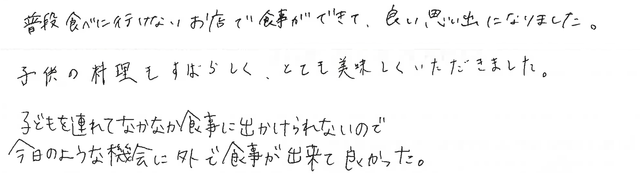 普段食べに行けないお店で食事ができて、良い思い出になりました。
子供の料理もすばらしく、とても美味しくいただきました。
子どもを連れてなかなか食事に出かけられないので
今日のような機会に外で食事が出来て良かった。